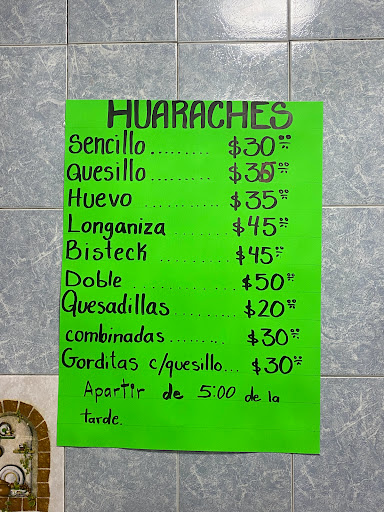 HUARACHES
Sencillo ......... $30.00
Quesillo ......... $35.00
Huevo .......... $35.00
Longaniza ........ $45.00
Bisteck .......... $45.00
Doble ............ $50.00
Quesadillas ......... $20.00
combinadas ........ $30.00
Gorditas c/quesillo... $30.00
Apartir de 5:00 de la
tarde.